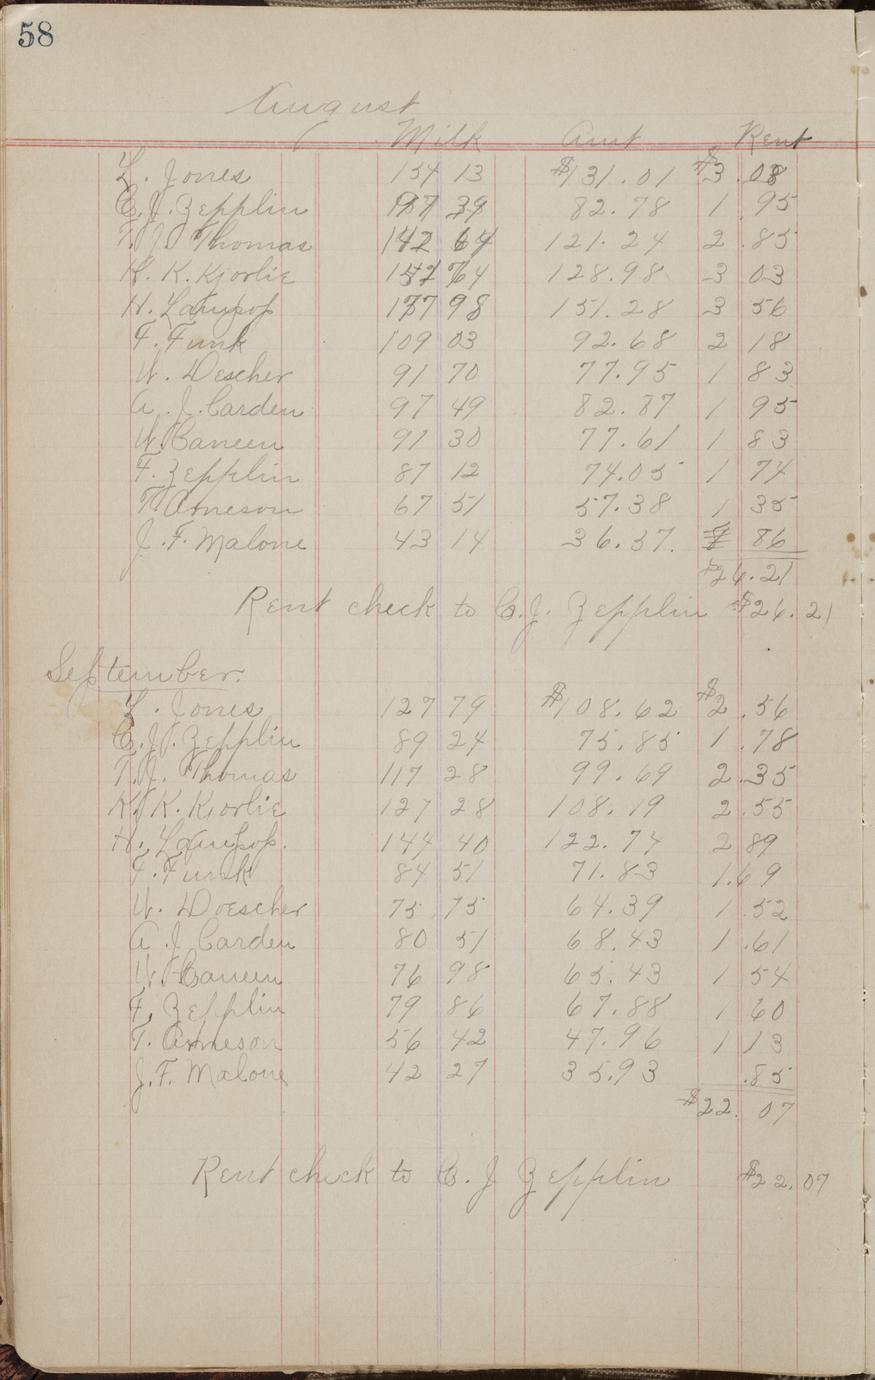 58
August
Milk Amt Rent
L. Jones 154 13 $131.01 $3.08
C. J. Zepplin 97 39 82.78 1 .95
T. J. Thomas 142 64 121.24 2 .85
K. K. Kjorlie 152 64 128.98 3 03
H. Laufsop 177 98 151.28 3 56
F. Funk 109 03 92.68 2 18
W. Descher 91 70 77.95 1 83
A. J. Carden 97 49 82.87 1 95
W. Caneen 91 30 77.61 1 83
F. Zepplin 87 12 74.05 1 74
T. Arneson 67 51 57.38 1 35
J. F. Malone 43 14 36.37. 86
$26.21
Rent check to C. J. Zepplin $26.21
September.
L. Jones 127 79 $108.62 $2.56
C. J. Zepplin 89 24 75.85 1.78
T. J. Thomas 117 28 99.69 2.35
K. K. Kjorlie 127 28 108.19 2.55
H. Laufsop. 144 40 122.74 2 89
F. Funk 84 51 71.83 1.69
W. Doescher 75 75 64.39 1.52
A. J. Carden 80 51 68.43 1.61
W. Caneen 76 98 65.43 1 54
F. Zepplin 79 86 67.88 1 60
T. Arneson 56 42 47.96 1 13
J. F. Malone 42 27 35.93 .85
$22. 07
Rent check to C. J. Zepplin $22.07